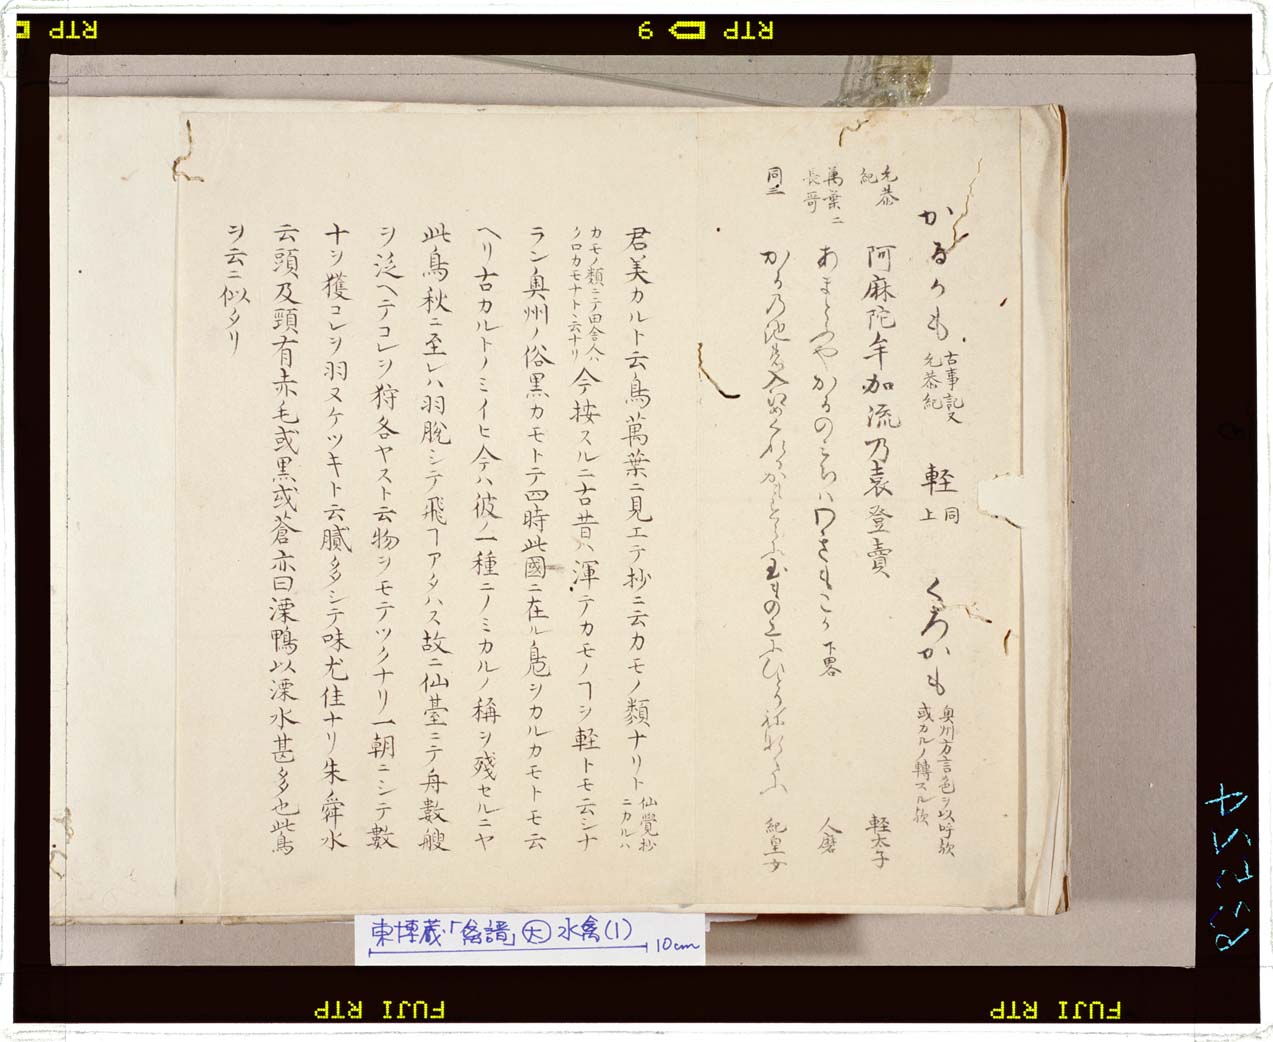 かるかも 古事記又允恭紀 軽 同上 くろかも 奥州方言色ヲ以呼歟或カルノ轉スル歟
允恭紀 阿麻陀牟加流乃袁登賣 軽太子
萬葉二長哥 あまとふやかるのみちハわきもこか 下畧 人麿
同三 かるの池 紀皇女
君美カルト云鳥萬葉ニ見エテ抄ニ云カモノ類ナリト 仙覺抄ニカルハ
カモノ類ニテ田舎人ハクロカモナトヽ云ナリ 今按スルニ古昔ハ渾テカモノヿヲ軽トモ云シナ
ラン奥州ノ俗黒カモトテ四時此國ニ在ル鳧ヲカルカモトモ云
ヘリ古カルトノミイヒ今ハ彼ノ一種ニノミカルノ稱ヲ殘セルニヤ
此鳥秋ニ至レハ羽脫シテ飛ヿアタハス故ニ仙臺ニテ舟數艘
ヲ泛ヘテコレヲ狩各ヤスト云物ヲモテツクナリ一朝ニシテ數
十ヲ獲コレヲ羽ヌケツキト云膩多シテ味尤佳ナリ朱舜水
云頭及頸有赤毛或黒或蒼亦曰溧鴨以溧水甚多也此鳥
ヲ云ニ似タリ
東博蔵「禽譜」大 水禽(1)
10cm
RTP
RTP
9
FUJI RTP
FUJI RTP